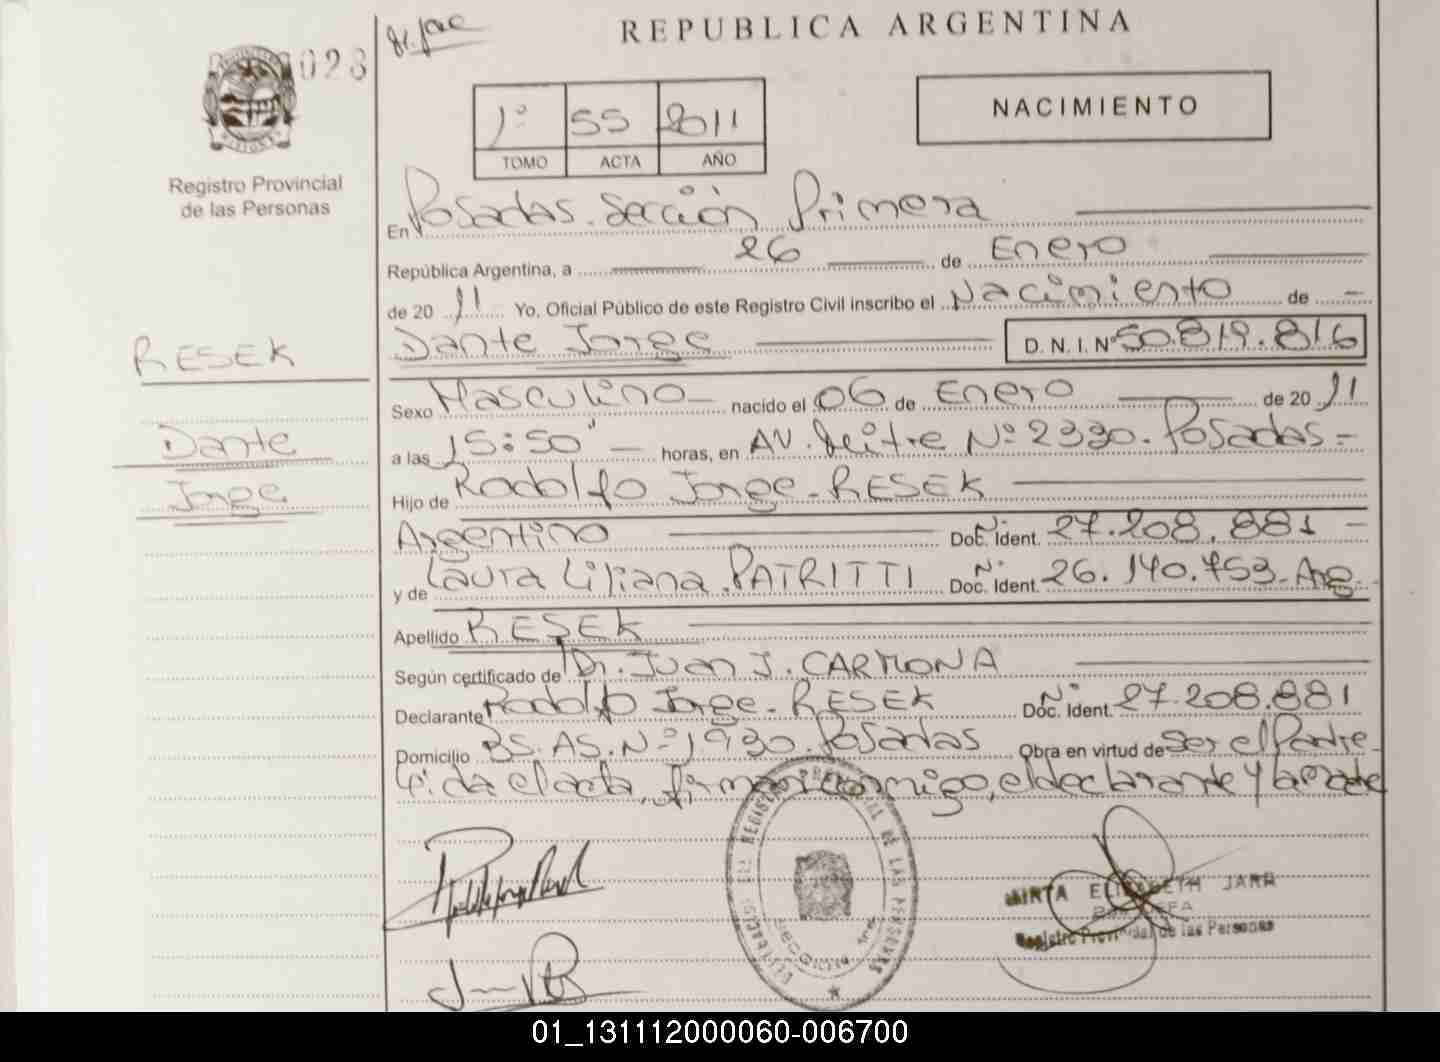 REPUBLICA ARGENTINA
028
1º 55 2011
TOMO ACTA AÑO
NACIMIENTO
Registro Provincial
de las Personas
En Posadas. Sección Primera
República Argentina, a 26 de Enero
de 2011 Yo, Oficial Público de este Registro Civil inscribo el Nacimiento de
RESEK
Dante Jorge D. N. I. Nº 50.819.816
Sexo Masculino nacido el 06 de Enero de 2011
Dante
a las 15:50 horas, en AV. Mitre Nº 2330. Posadas
Jorge
Hijo de Rodolfo Jorge RESEK
Argentino Doc. Ident. Nº 27.208.881
y de Laura Liliana PATRITTI Doc. Ident. Nº 26.140.753 Arg.
Apellido RESEK
Según certificado de Dr. Juan J. CARMONA
Declarante Rodolfo Jorge RESEK Doc. Ident. Nº 27.208.881
Domicilio BS. AS. Nº 1930. Posadas Obra en virtud de Ser el Padre
Leída el acta, firman conmigo, el declarante y la madre
MIRTA ELIZABETH JARA
Registro Provincial de las Personas
01_131112000060-006700